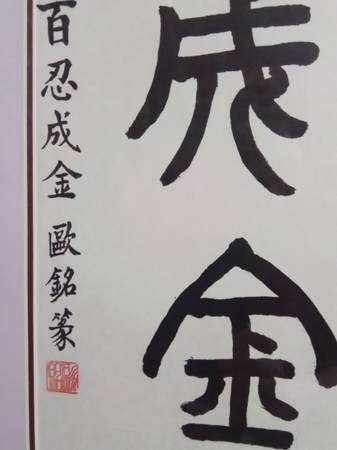 成金
百忍成金 歐銘篆